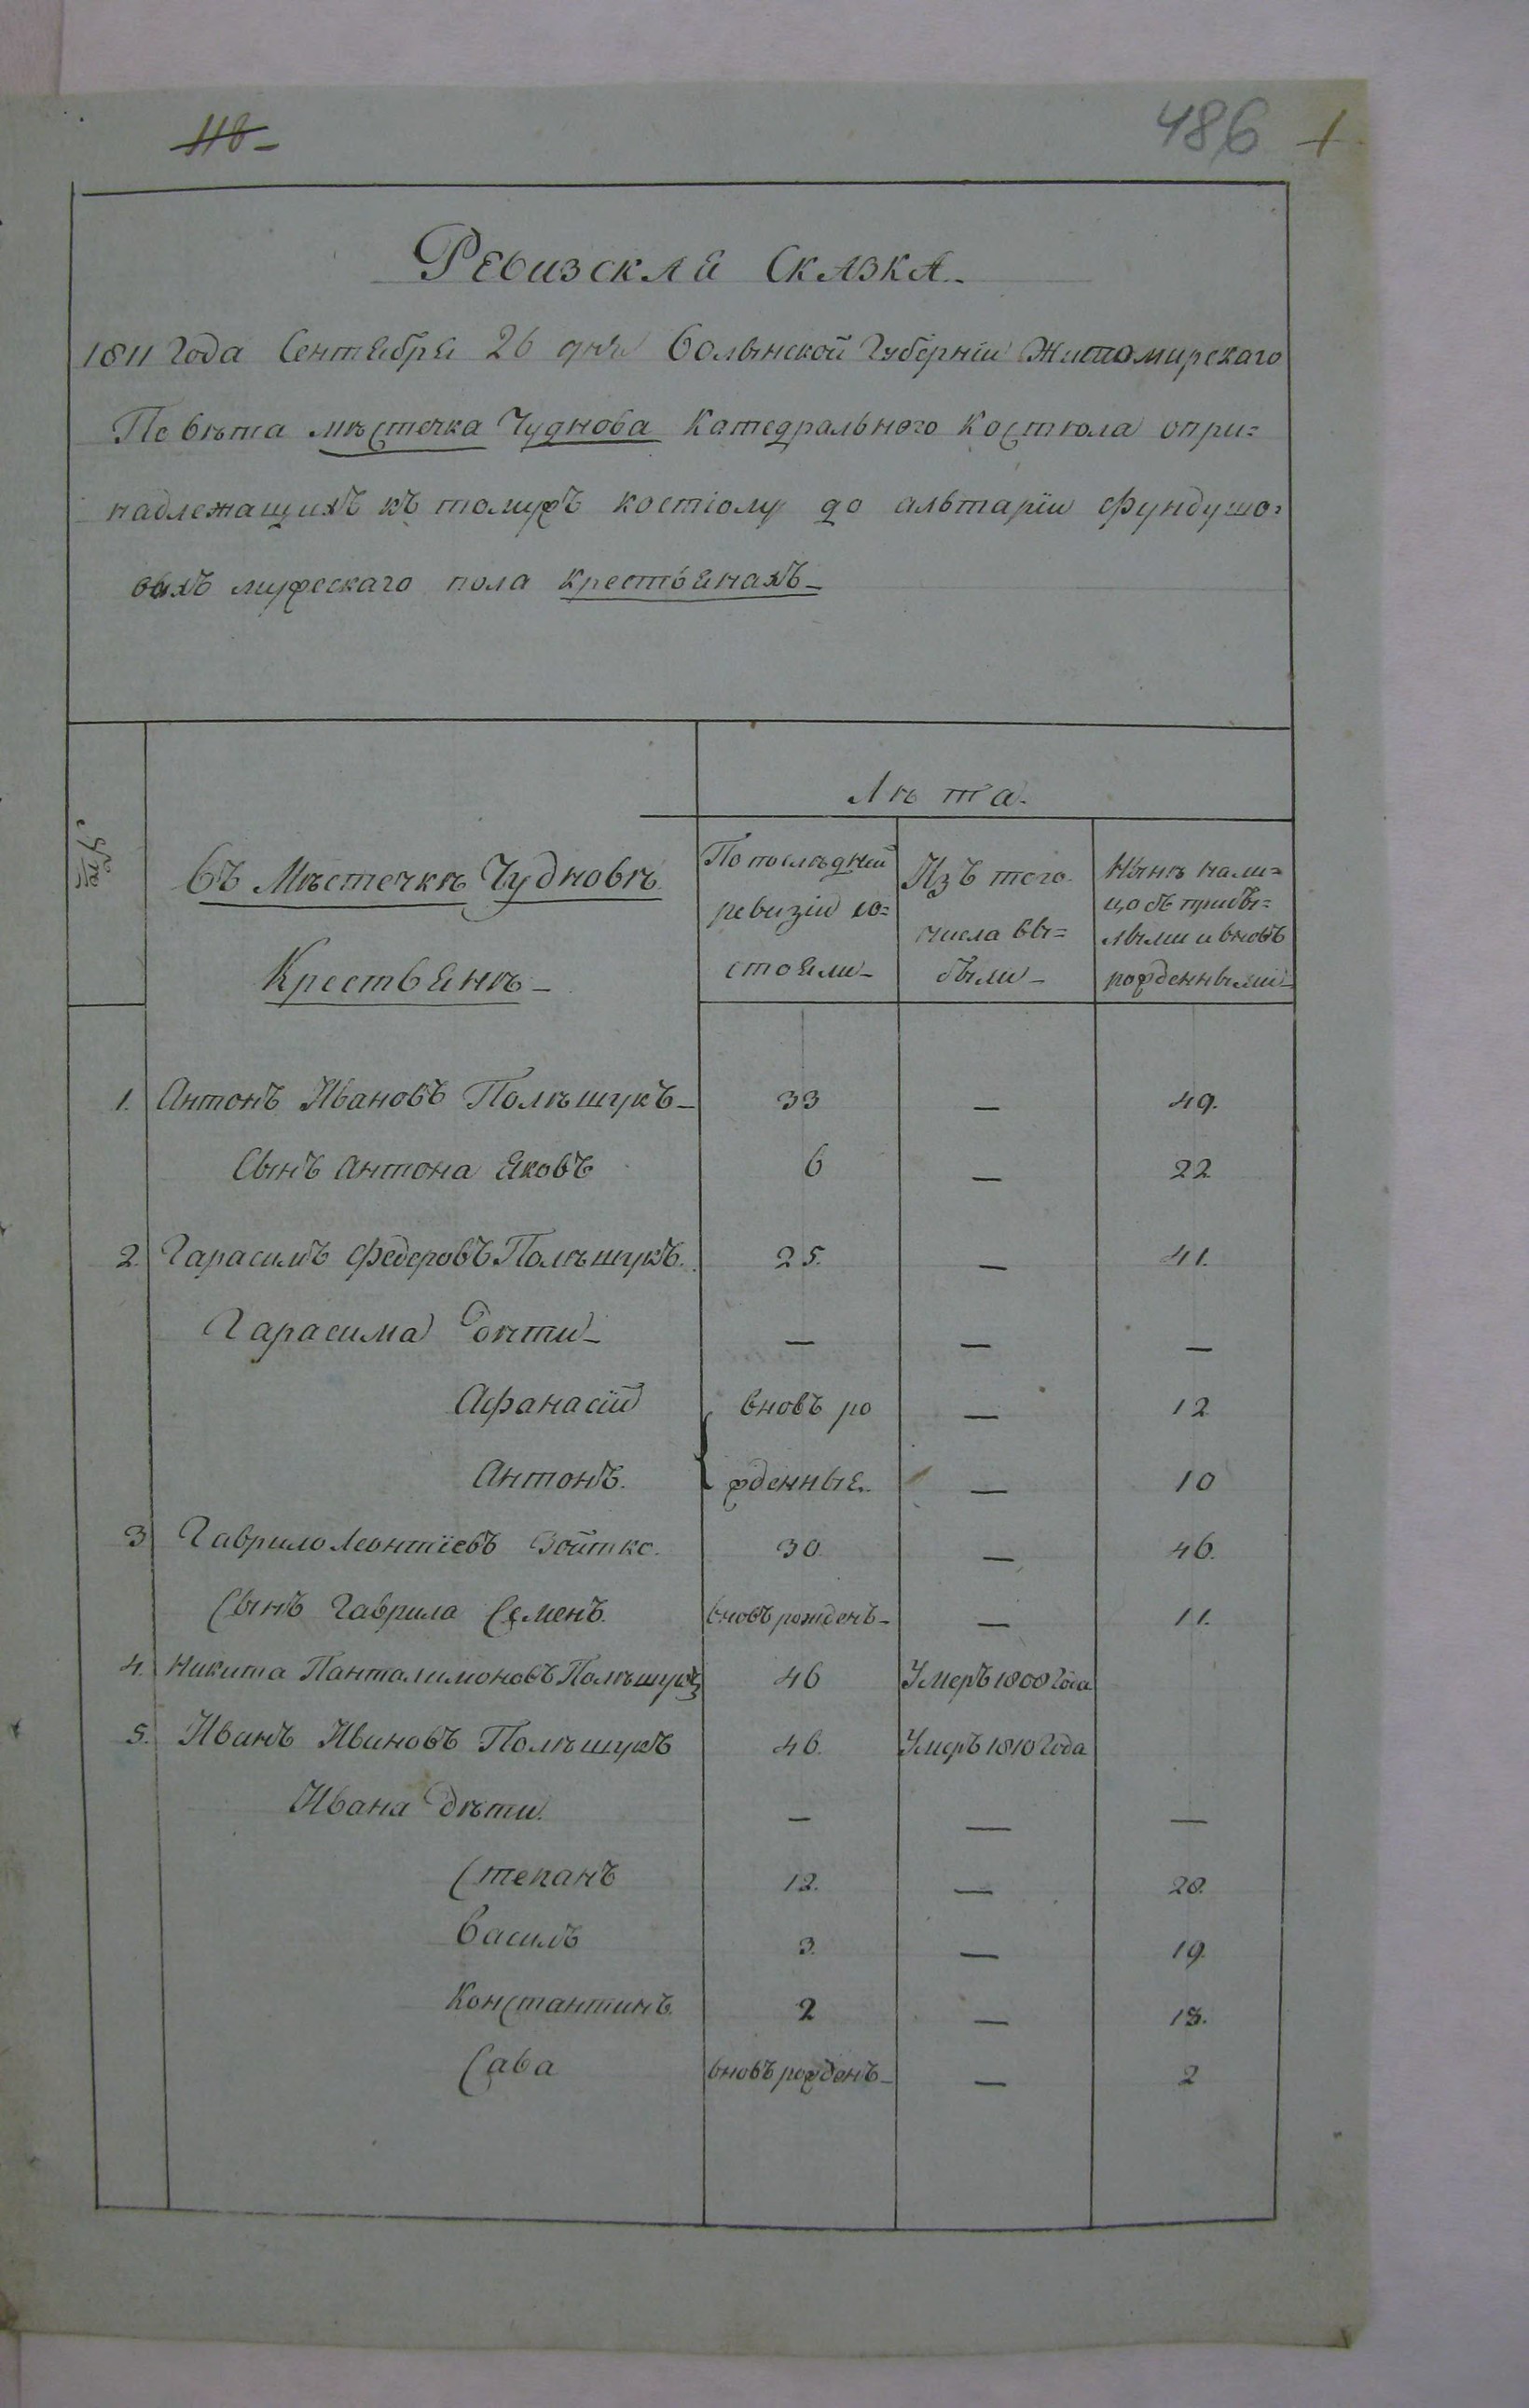 118
486 1
Ревизская Сказка
1811 Года Сентября 26 дня Волынской Губерніи Житомирскаго
Повѣта мѣстечка Чуднова Катедральнаго Костюла опри=
надлежащихъ къ томужъ костіолу до альтаріи фундушо=
выхъ мужескаго пола крестьянахъ
Лѣта.
Въ Мѣстечкѣ Чудновѣ
Крестьянѣ
По послѣдней
ревизіи со=
стояли
Изъ того
числа вы=
были
Нынѣ нали=
цо съ прибы=
лыми и вновь
рожденными
1. Антонъ Ивановъ Полѣшукъ 33 — 49.
Сынъ Антона Яковъ 6 — 22
2. Гарасимъ Федоровъ Полѣшукъ. 25. — 41.
Гарасима Дѣти — — —
Афанасій вновъ ро — 12
Антонъ. жденные. — 10
3 Гаврило Леонтіевъ Войтко. 30 — 46.
Сынъ Гаврила Семенъ вновъ рожденъ — 11.
4. Никита Панталимоновъ Полѣшукъ 46 Умеръ 1808 Года
5. Иванъ Ивановъ Полѣшукъ 46. Умеръ 1810 Года
Ивана Дѣти. — — —
Степанъ 12. — 28.
Василь 3. — 19.
Константинъ 2 — 18.
Сава вновъ рожденъ — 2